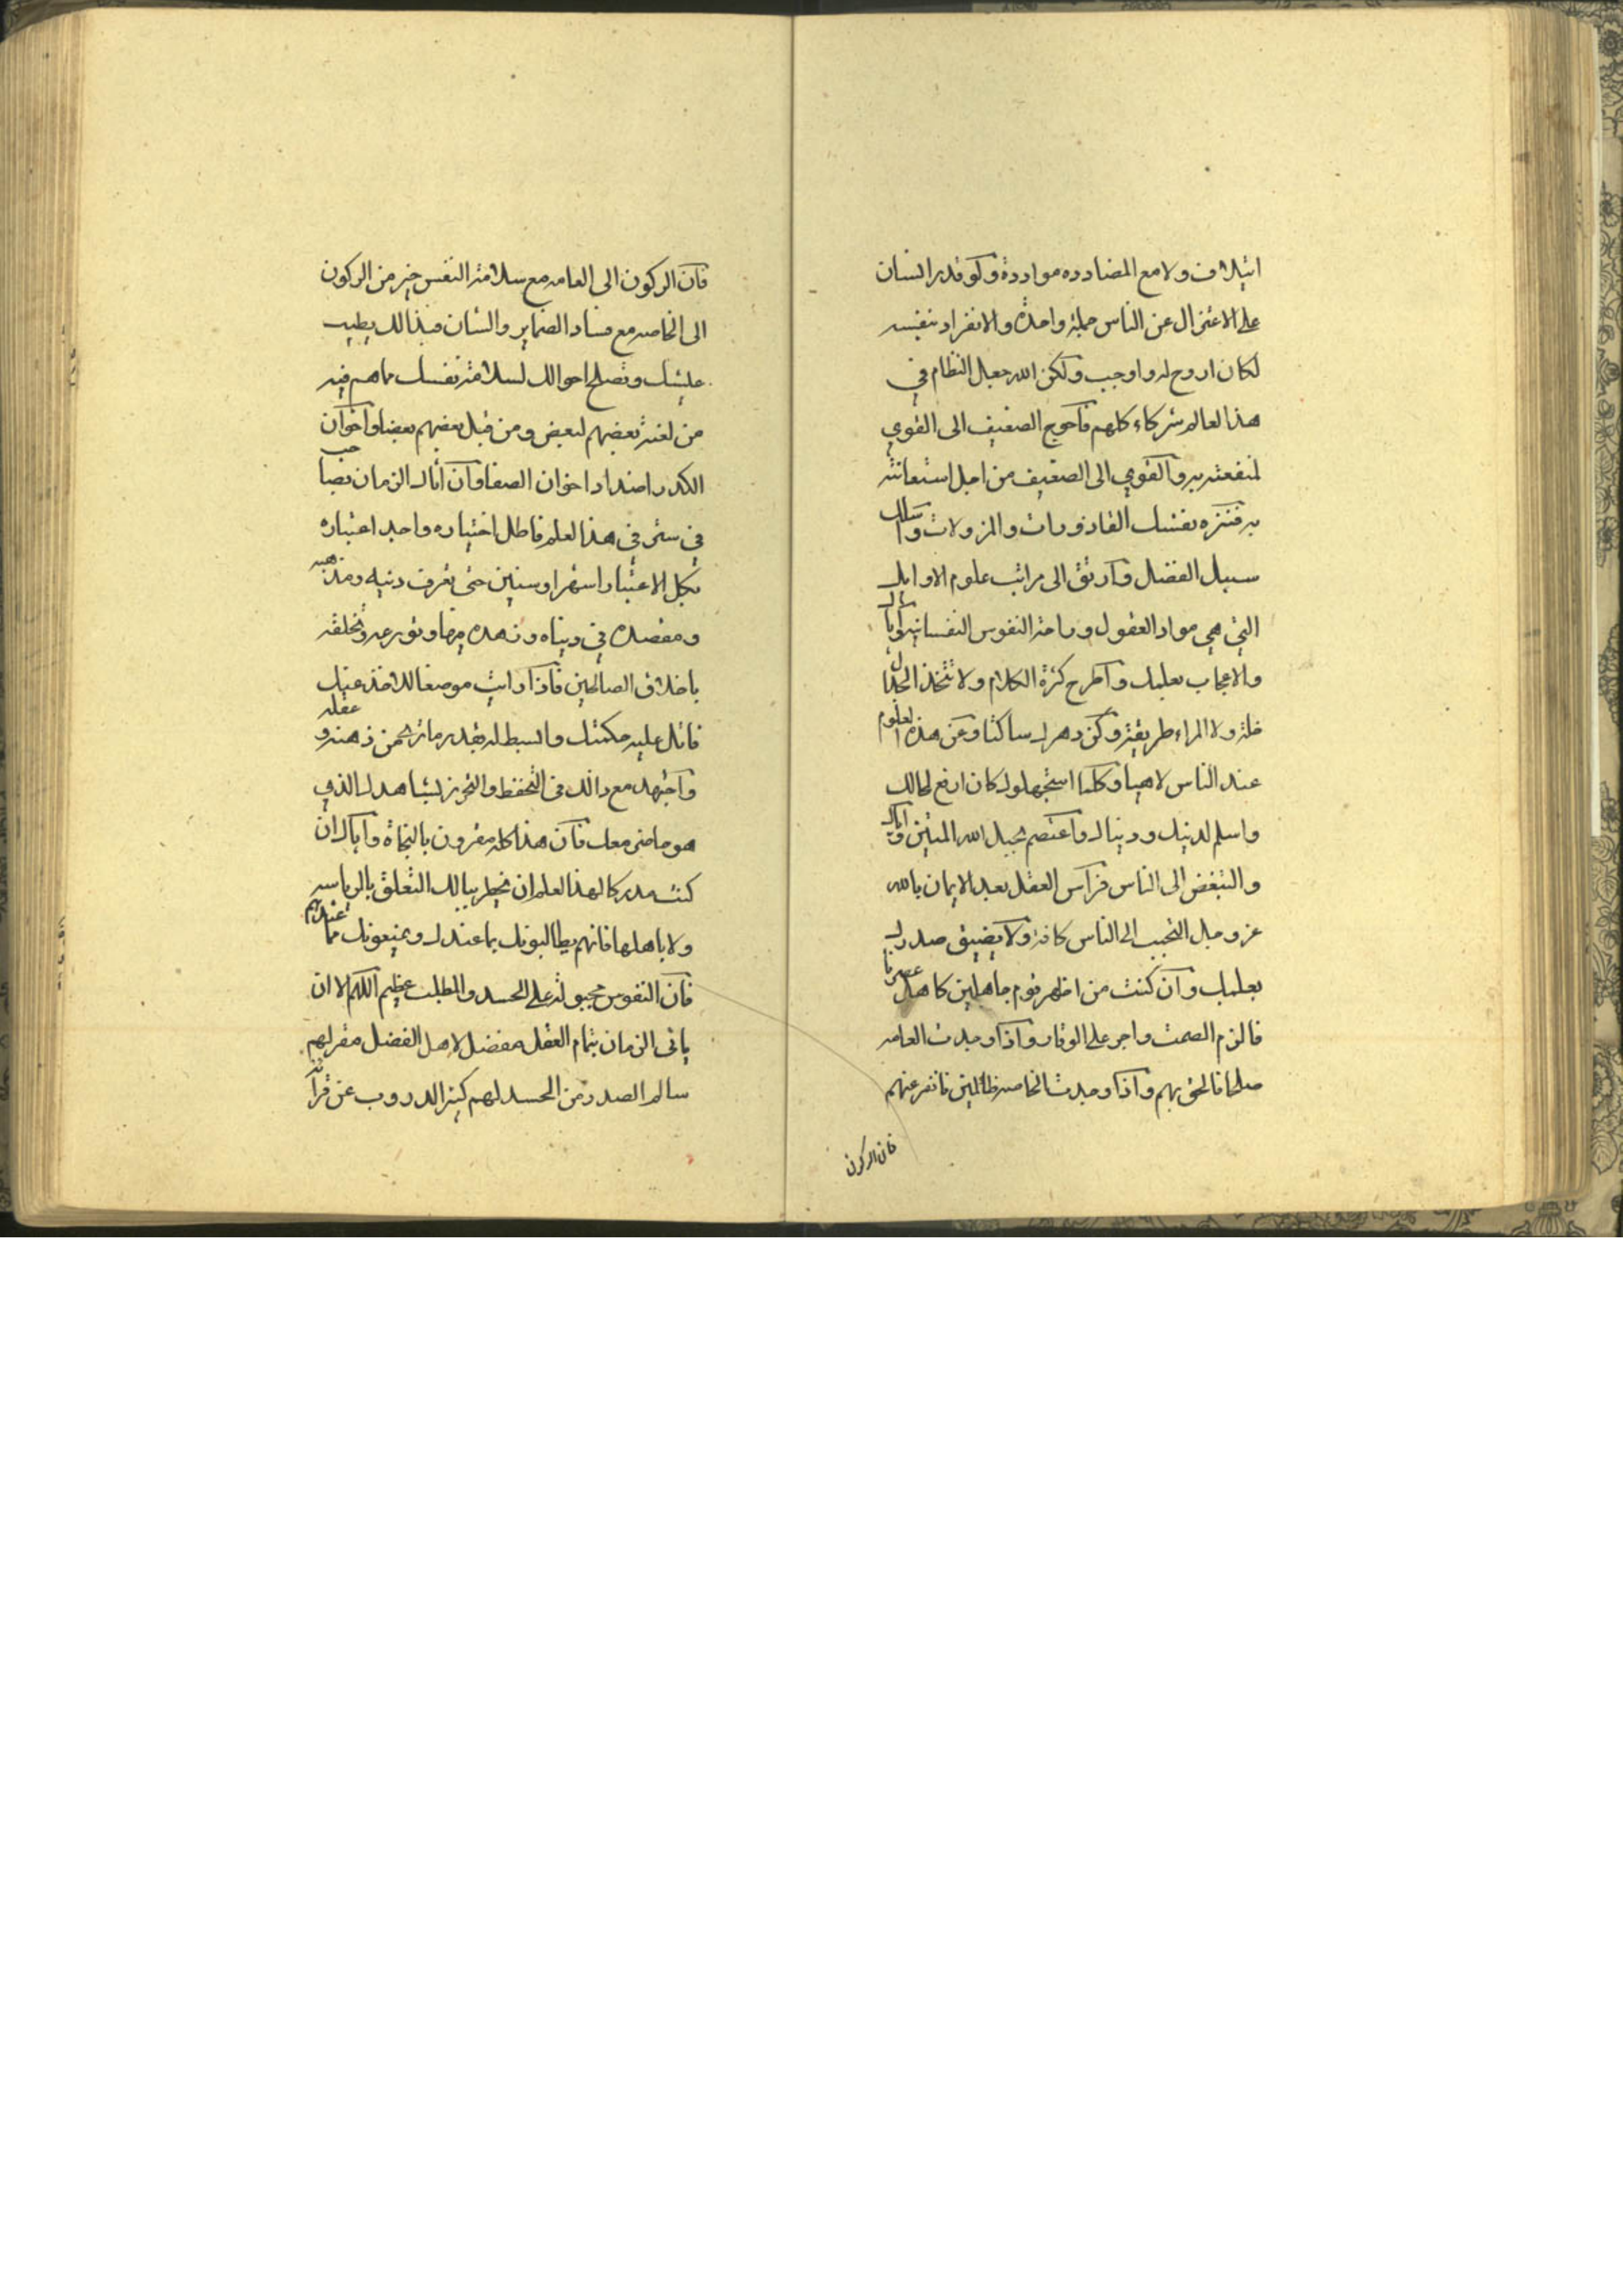 ائتلاف ولا مع المضادده مواددة ولو قدر انسان
على الاعتزال عن الناس جملة واحدة والانفراد بنفسه
لكان اروح له واوجب ولكن الله جعل النظام في
هذا لعالم شركاء كلهم فاحوج الضعيف الى القوي
لمنفعته به والقوي الى الضعيف من اجل استعانته
به فتنزه بفنسك القاذورات والمزولات واسلك
سبيل الفضل وارتق الى مراتب علوم الاوايل
التي هي مواد العقول وراحة النفوس النفسانيه واياك
والاعجاب بعلمك واطرح كثرة الكلام ولا تتخذ الجدل
خلة ولا المراء طريقة وكن دهرك ساكتا وعن هذه العلوم
عند الناس لاهيا وكلما استجهلوك كان ارفع لحالك
واسلم لدينك ودنياك واعتصم بحبل الله المتين واياك
والتبغض الى الناس فراس العقل بعد الايمان بالله
عز وجل التحبب الى الناس كافة ولا يضيق صدرك
بعلمك وان كنت من اظهر قوم جاهلين كاهل عصرنا
فالزم الصمت واجر على الوقار واذا وجدت العامه
صلحا فالحق بهم واذا وجدت الخاصه ظالمين فانفر عنهم
فان الركون
فان الركون الى العامه مع سلامة النفس خير من الركون
الى الخاصه مع فساد الضماير والشان فبذالك يطيب
عيشك وتصلح احوالك لسلامة نفسك مما هم فيه
من لعنة بعضهم لبعض ومن قبل بعضهم بعضا واخوان
الكدر اضداد اخوان الصفا وان اتاك الزمان بصاحب
في سئر في هذا لعلم فاطل اختياره واجد اعتباره
بكل الاعتبار اشهرا وسنين حتى تعرف دنيه ومذهبه
ومقصده في دنياه وزهده فيها وتورعه وتخلقه
باخلاق الصالحين فاذا رايت موضعا للاخذ عنك
فاتل عليه حكمتك وابسط له بقدر ما ترى من ذهنه وعقله
واجتهد مع ذالك في التحفظ والتحرز لشاهدك الذي
هو حاضر معك فان هذا كله مقرون بالنجاة واياك ان
كنت مدركا لهذا لعلم ان يخطر ببالك التعلق بالرياسه
ولا باهلها فانهم يطالبونك بما عندك ويمنعونك مما عندهم
فان النفوس مجبولة على الحسد والمطلب عظيم اللهم الا ان
ياتى الزمان بتمام العقل مفضل لاهل الفضل مقر لهم
سالم الصدر من الحسد لهم كثير الدروب عن قرآنه